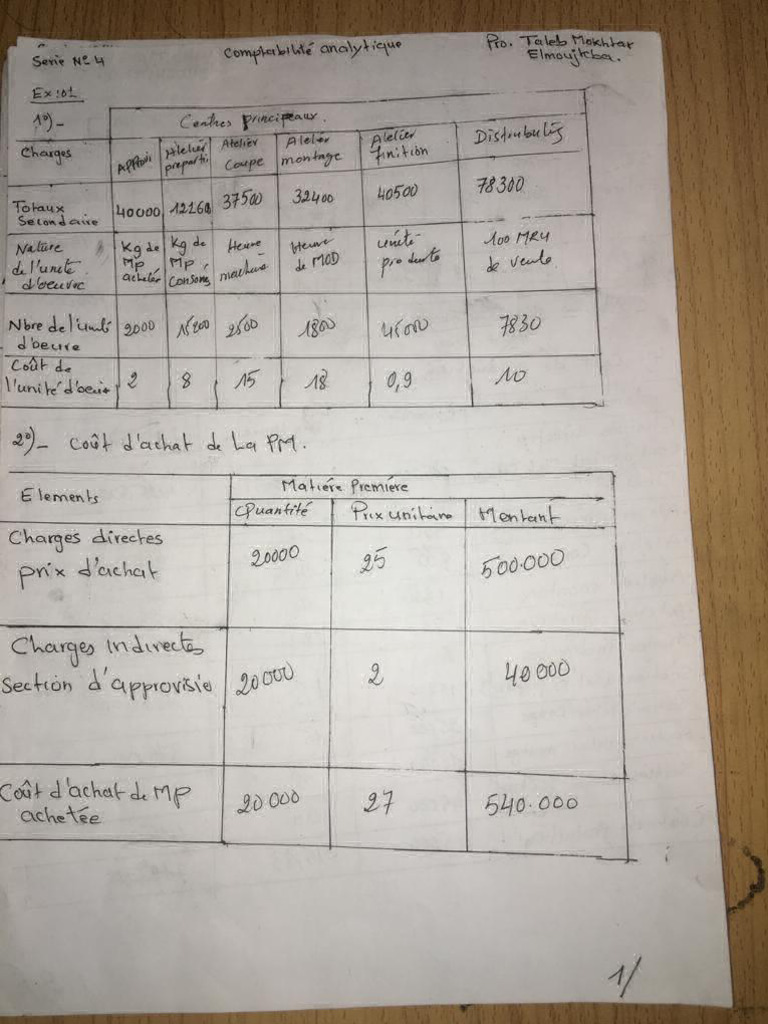 Serie N° 4 Comptabilité analytique Pro. Taleb Mokhtar
Elmoujtba.
Ex:01
1°)-
Centres principeaux.
Charges Approvi Atelier preparti Atelier Coupe Atelier montage Atelier finition Distrubutis
Totaux Secondaire 40000 12160 37500 32400 40500 78300
Nature de l'unété d'oeuvre Kg de Mp achetér Kg de Mp Consomés Heure machine Heure de MOD unité produite 100 MRU de vente
Nbre de l'unité d'oeuvre 2000 15200 2500 1800 45000 7830
Coût de l'unité d'oeuvre 2 8 15 18 0,9 10
2°)- Coût d'achat de La PM.
Elements Matiére Premiére
Quantité Prix unitaire Mentant
Charges directes
prix d'achat 20000 25 500.000
Charges Indirectes
section d'approvisio 20000 2 40000
Coût d'achat de Mp
achetée 20.000 27 540.000
1/